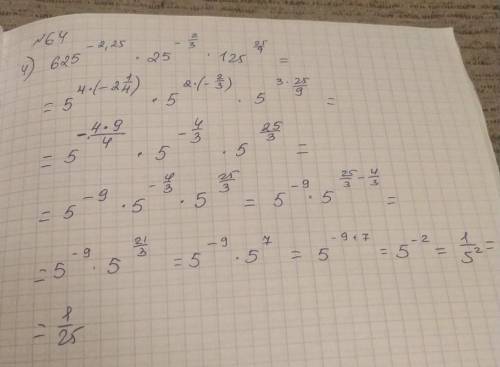 №64
4) 625^{-2,25} · 25^{-\frac{2}{3}} · 125^{\frac{25}{9}} =
= 5^{4·(-2\frac{1}{4})} · 5^{2·(-\frac{2}{3})} · 5^{3·\frac{25}{9}} =
= 5^{-\frac{4·9}{4}} · 5^{-\frac{4}{3}} · 5^{\frac{25}{3}} =
= 5^{-9} · 5^{-\frac{4}{3}} · 5^{\frac{25}{3}} = 5^{-9} · 5^{\frac{25}{3}-\frac{4}{3}} =
= 5^{-9} · 5^{\frac{21}{3}} = 5^{-9} · 5^{7} = 5^{-9+7} = 5^{-2} = \frac{1}{5^2} =
= \frac{1}{25}